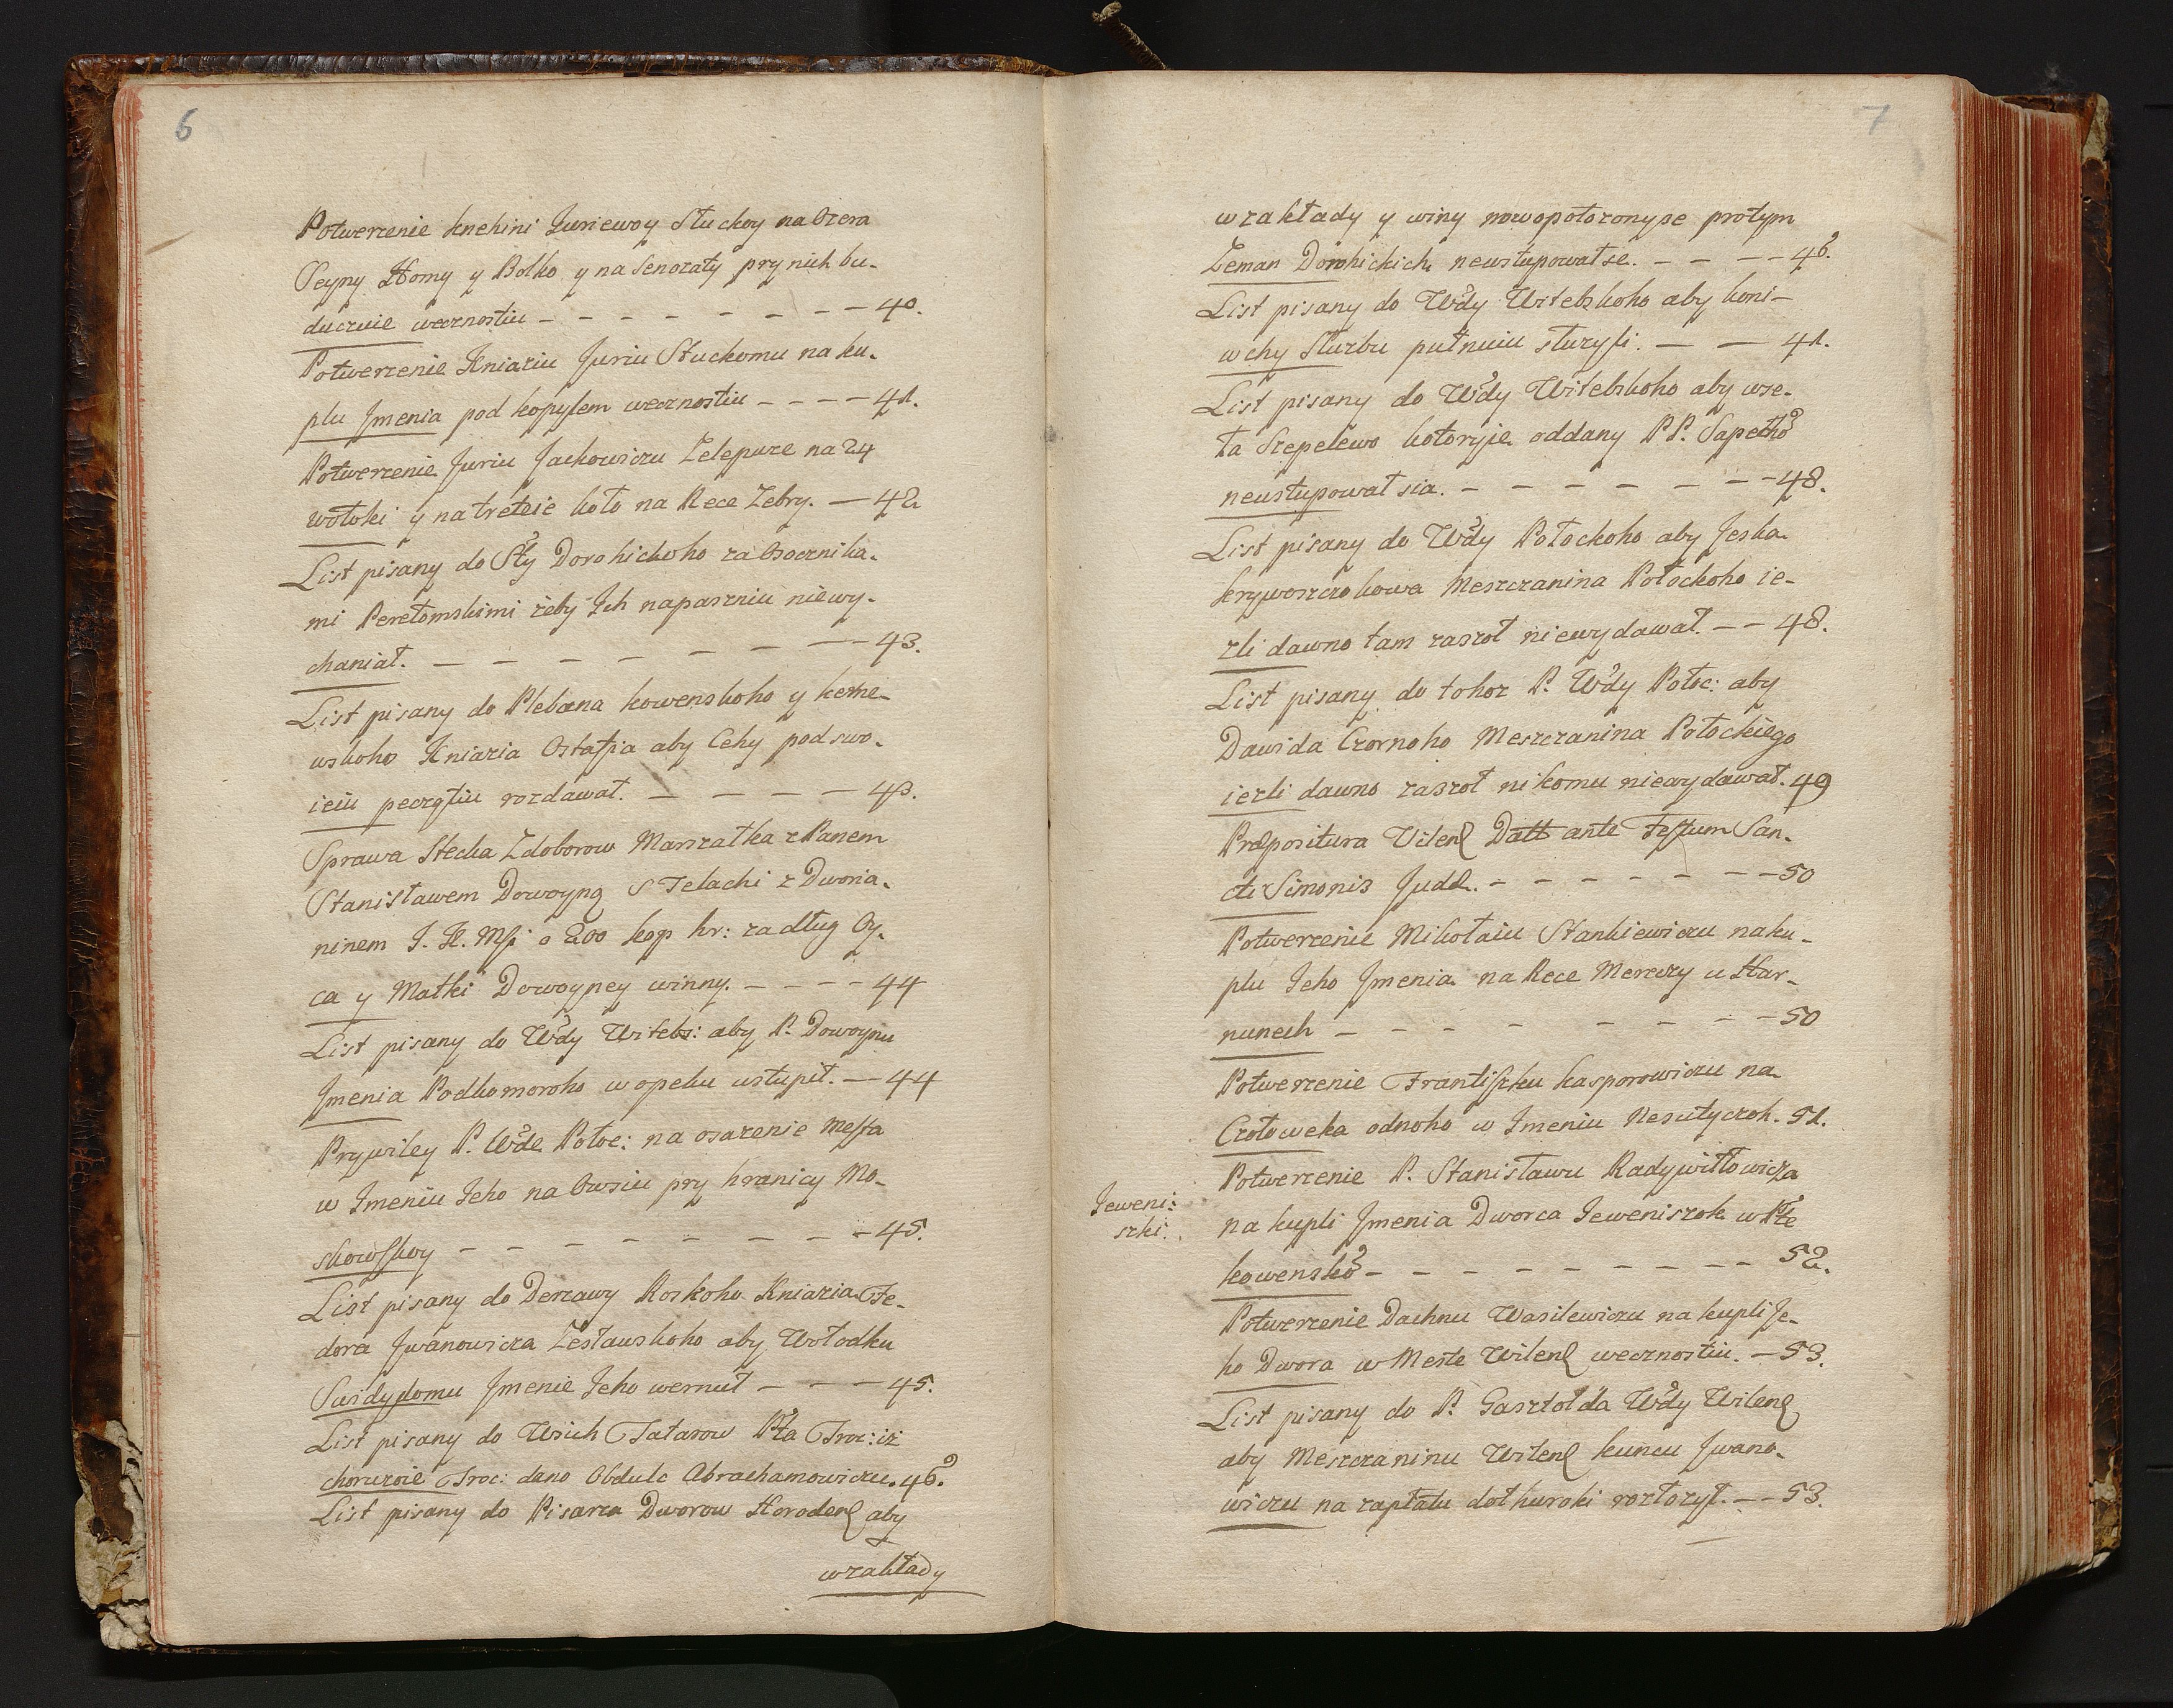 6
Potwerzenie knehini Juriewoy Słuckoy na Ozera
Seyny Homy y Bolko y na Senozaty pry nich bu-
duczuie wecznostiu - - - - - - - - 40.
Potwerzenie Kniaziu Juriu Słuckomu na ku-
plu Jmenia pod kopylem wecznostiu - - - - 41.
Potwerzenie Juriu Jackowiczu Zelepuze na 24
wołoki y na treteie koło na Rece Zebry. - 42
List pisany do Sty Dorohickoho za Osocznika-
mi Perełomskimi żeby Ich napaszniu niewy-
chaniał. - - - - - - - - 43.
List pisany do Plebana kowenskoho y kerne-
wskoho Kniazia Ostafia aby Cehy pod swo-
ieiu peczętiu rozdawał. - - - - 43.
Sprawa Stecka Zdoborow Marszałka z Panem
Stanisławem Dowoyną S Telachi z Dworia-
ninem J. K. Msi o 200 kop hr: za dług Oy-
ca y Matki Dowoyney winny. - - - - 44
List pisany do Wdy Witebs: aby P. Dowoynu
Jmenia Podkomoroho w opeku ustupił. - 44
Prywiley P. Wde Połoc: na osazenie Mesta
w Jmeniu Jeho na Owsiu pry hranicy Mo-
skowskoy - - - - - - - - 45.
List pisany do Derzawy Roskoho Kniazia Fe-
dora Jwanowicza Zesławskoho aby Wołodku
Swidydomu Jmenie Jeho wernuł - - - 45.
List pisany do Wsich Tatarow Pta Troc: iż
choruzoie Troc: dano Obdule Abrachamowiczu. 46.
List pisany do Pisarza Dworow Horodens aby
wzakłady
7
wzakłady y winy nowopołozonyie protym
Zeman Dorohickich neustupowałse. - - - - 46.
List pisany do Wdy Witebskoho aby koni-
wchy Służbu putnuiu słuzyli. - - 41.
List pisany do Wdy Witebskoho aby wse-
ła Szepelewo kotoryie oddany PP. Sapeho
neustupował sia. - - - - - - - 48.
List pisany do Wdy Połockoho aby Jeska
Krywoszczokowa Meszczanina Połockoho ie-
zli dawno tam zaszoł niewydawał. - - 48.
List pisany do tohoz P. Wdy Połoc: aby
Dawida Czornoho Meszczanina Połockiego
iezli dawno zaszoł nikomu niewydawał. 49
Præpositura Vilens Datt ante Festum San-
cti Simonis Judæ. - - - - - - - 50
Potwerzenie Mikołaiu Stankiewiczu na ku-
plu Jeho Jmenia na Rece Mereczy u Har-
nunech - - - - - - - - 50
Potwerzenie Frantiszku kasporowiczu na
Czołoweka odnoho w Jmeniu Nesutyczoh. 51.
Potwerzenie P. Stanisławu Radywiłłowicza
Jeweni:
szki.
na kupli Jmenia Dworca Jeweniszok w Pte
kowensko - - - - - - - - - 52.
Potwerzenie Dachnu Wasilewiczu na kupli Je-
ho Dwora w Meste Wilens wecznostiu. - 53.
List pisany do P. Gasztołda Wdy Wilens
aby Meszczaninu Wilens kuncu Jwano-
wiczu na zapłatu dołhu roki rozłozył. - - 53.